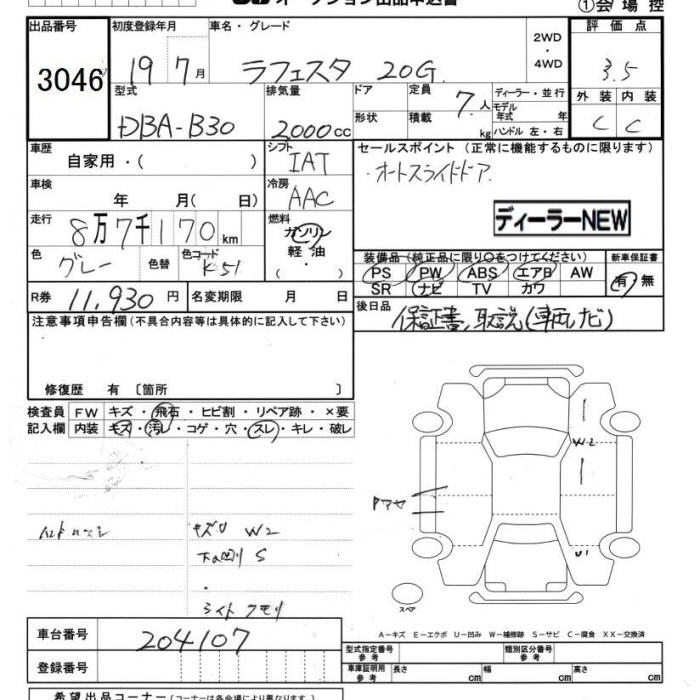 オークション出品申込書
①会場控
出品番号 初度登録年月 車名・グレード 2WD・4WD 評価点
3046 19 7月 ラフェスタ 20G 3.5
型式 排気量 ドア 定員 7人 ディーラー・並行 外装 内装
モデル年式 年
DBA-B30 2000cc 形状 積載 kg ハンドル 左・右 C C
車歴 自家用・( ) シフト IAT セールスポイント (正常に機能するものに限ります)
オートスライドドア
車検 年 月( 日) 冷房 AAC
ディーラーNEW
走行 8万7千170km 燃料 ガソリン・軽油・( )
色 グレー 色替 色コード K51
装備品(純正品に限り○をつけてください) 新車保証書
PS PW ABS エアB AW 有・無
SR ナビ TV カワ
R券 11,930円 名変期限 月 日
後日品 保証書,取説(車両,ナビ)
注意事項申告欄(不具合内容等は具体的に記入して下さい)
修復歴 有〔箇所 〕
検査員 FW キズ・飛石・ヒビ割・リペア跡・×要
記入欄 内装 キズ・汚レ・コゲ・穴・スレ・キレ・破レ
W2
キズリ W2
下回リ S
ライト クモリ
U1
スペア
A-キズ E-エクボ U-凹み W-補修跡 S-サビ C-腐食 XX-交換済
車台番号 204107
型式指定番号 参考 類別区分番号 参考
車庫証明用 参考 長さ cm 幅 cm 高さ cm
登録番号
希望出品コーナー(コーナーは各会場により異なります)